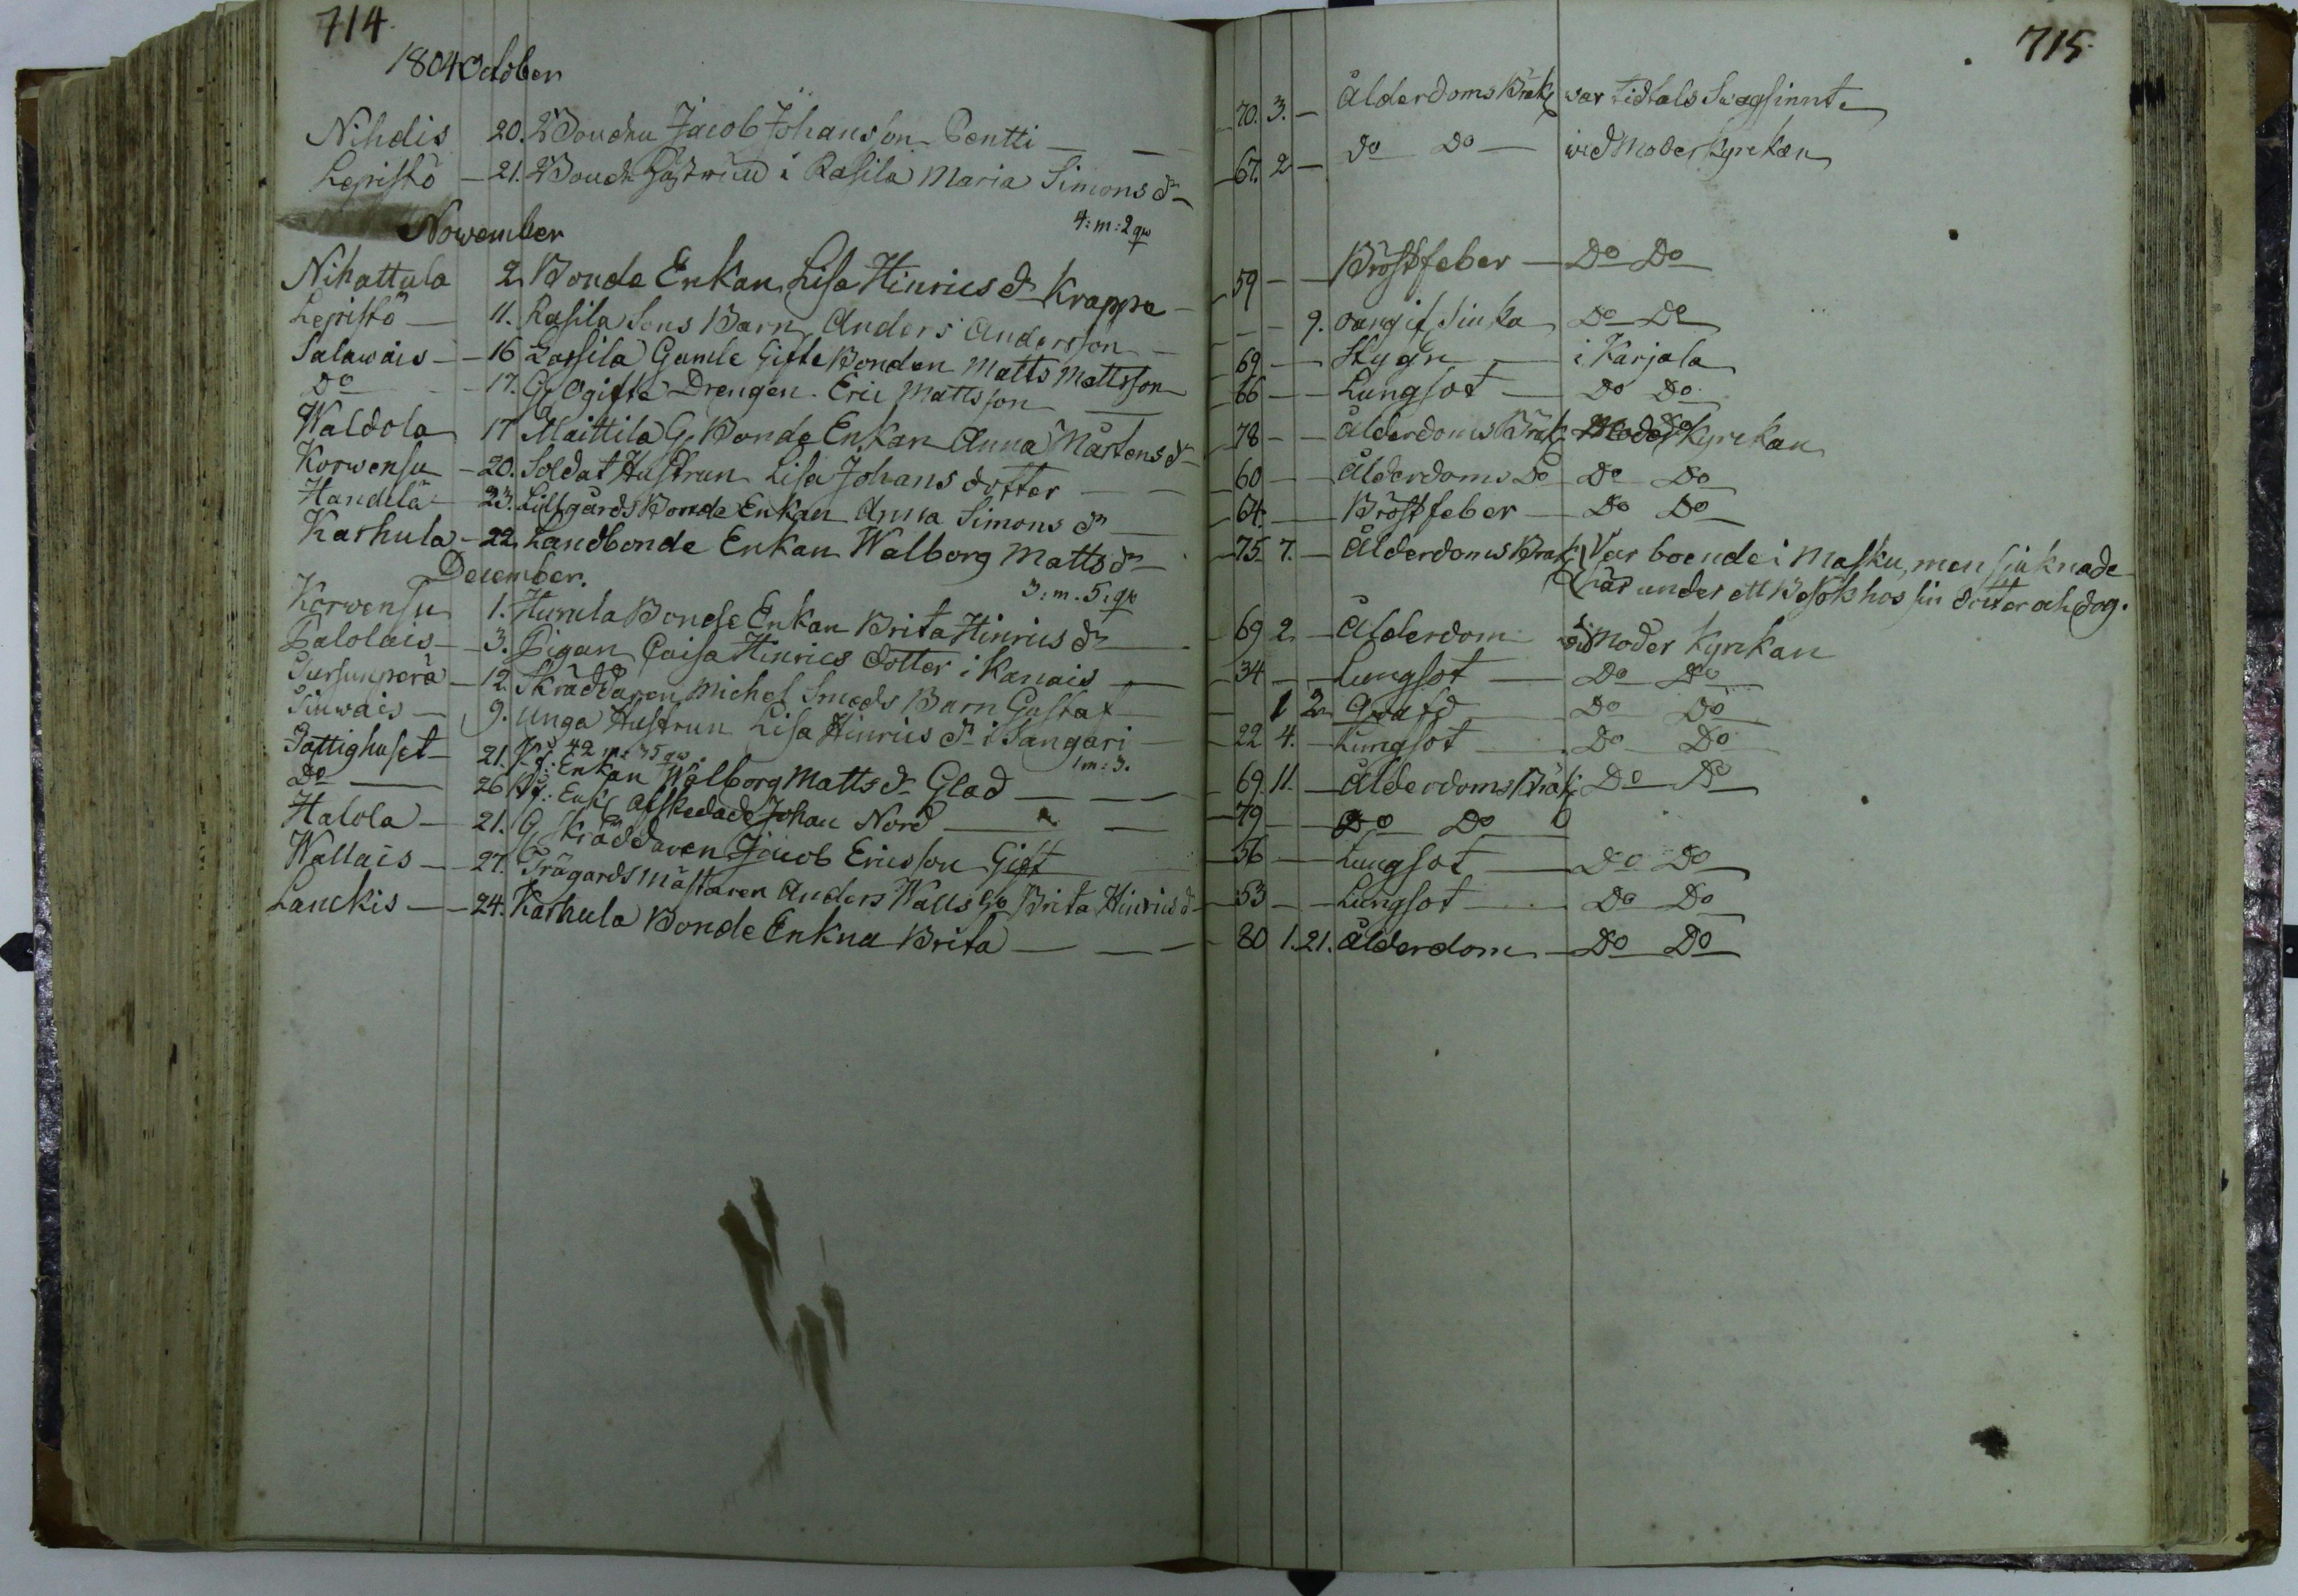 714
1804 October
Nihdis 20. Bonden Jacob Johansson Pentti
Lepistö 21. i Rasila Maria Simons dr
4:m:2 qw
November
Nihattula 2 Bonde Enkan Lisa Hinrics dr Krappe
Lepistö 11. Rasila Sons Barn Anders Andersson
Salawais 16 Lassila Gamle Gifte Bonden Matts Mattsson
Do 17. Ogifte Drengen Eric Mattsson
Waldola 17 Maittila G. Bonde Enkan Anna Mårtens dr
Korwensu 20. Soldat Hustrun Lisa Johans dotter
Handela 23. Lillgårds Bonde Enkan Anna Simons dr
Karhula 22 Landbonde Enkan Walborg Matts dr
December.
3:m.5:qw
Korwensu 1. Humla Bonde Enkan Brita Hinrics dr
Palolais 3. Pigan Caisa Hinrics dotter i Kanais
Pursunperä 12 Skräddaren Michel Smeds Barn Gustaf
Siuwais 9. unga Hustrun Lisa Hinrics dr i Sangari
42 m: 35 qw. 1m:3.
Fattighuset 21. Enkan Walborg Matts dr Glad
Do 26 Afskedade Johan Nord
Halola 21. G Skräddaren Jacob Ericsson Gift
Wallais 27. Trägårdsmästaren Anders Walls Brita Hinrics d
Lanckis 24. Karhula Bonde Enkna Brita
715
70. 3. Ålderdoms Bräk var tidtals Swagsinnt
67. 2 do Do wid Moder Kyrckan
59 Bröstfeber Do Do
9. oangif Siuka Do Do
69 Stygn i Karjala
66 Lungsot Do Do
78 Ålderdoms Bräk Moder Kyrckan
60 Ålderdoms Do Do Do
64. Bröstfeber Do Do
75 7. Ålderdoms Bräk Var boende i Masku, men siuknade
här under ett Besök hos sin dotter och dog.
69 2 Ålderdom wid Moder Kyrckan
34 Lungsot Do Do
1 2 Do Do
22 4. Lungsot Do Do
69. 11. Ålderdoms Bräk Do Do
79 Do Do
56 Lungsot Do Do
53 Lungsot Do Do
80 1. 21. Ålderdom Do Do